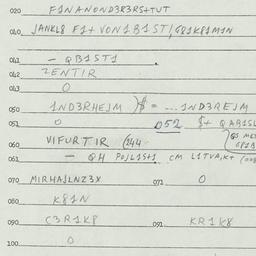 020 F1NANOND3R3RS+TUT
040 JANKL8 F1+ VON1B1ST/G81K81M1N
041 - QB1ST1
042 ZENTIR
043 0
050 1ND3RHEJM )$ = ... 1ND3REJM
051 0 052 $+ QAB1SL
060 VIFURTIR (244
061 - QH POJL1S+1 CM L1TVA,K+
070 MIRHAJLNZ3X 071 0
080 K81N
090 C3R1K8 091 KR1K8
100 0